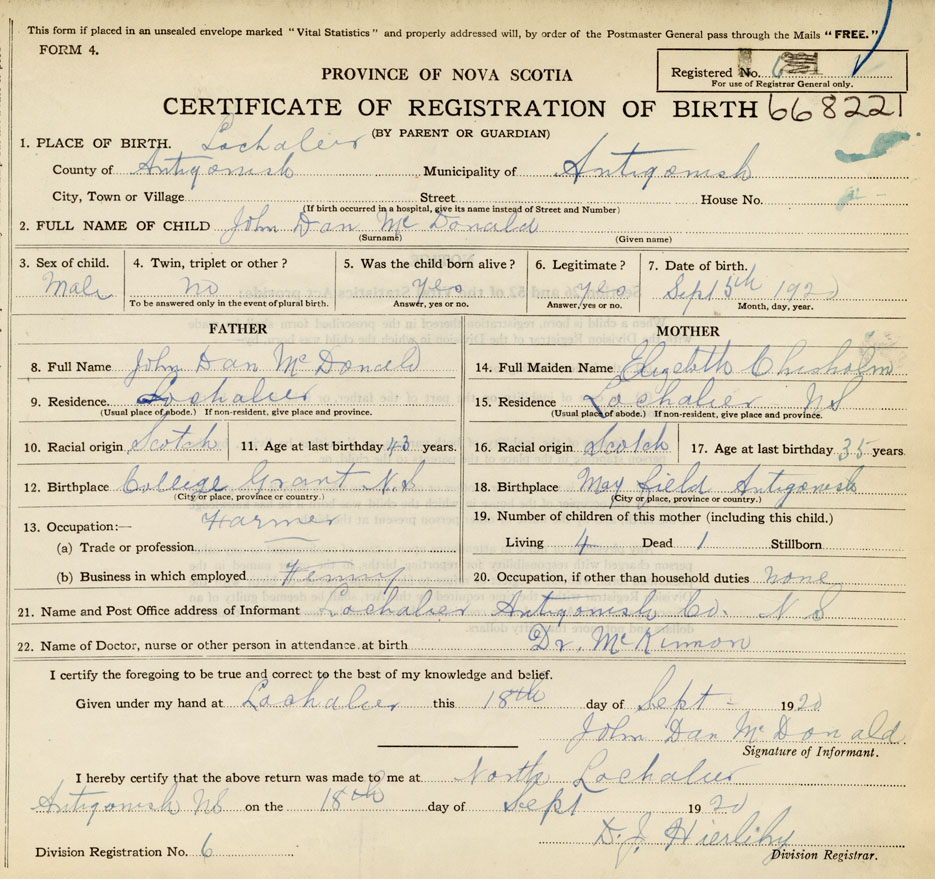 This form if placed in an unsealed envelope marked "Vital Statistics" and properly addressed will, by order of the Postmaster General pass through the Mails "FREE."
FORM 4.
Registered No. 6
For use of Registrar General only.
PROVINCE OF NOVA SCOTIA
CERTIFICATE OF REGISTRATION OF BIRTH 668221
(BY PARENT OR GUARDIAN)
1. PLACE OF BIRTH. Lochaber
County of Antigonish Municipality of Antigonish
City, Town or Village Street House No.
(If birth occurred in a hospital, give its name instead of Street and Number)
2. FULL NAME OF CHILD John Dan McDonald
(Surname) (Given name)
3. Sex of child. 4. Twin, triplet or other ? 5. Was the child born alive ? 6. Legitimate ? 7. Date of birth.
Male no yes yes Sept 5th 192
To be answered only in the event of plural birth. Answer, yes or no. Answer, yes or no. Month, day, year.
FATHER MOTHER
8. Full Name John Dan McDonald 14. Full Maiden Name Chisholm
9. Residence. Lochaber 15. Residence Lochaber NS
(Usual place of abode.) If non-resident, give place and province. (Usual place of abode.) If non-resident, give place and province.
10. Racial origin Scotch 11. Age at last birthday 43 years. 16. Racial origin Scotch 17. Age at last birthday 35 years.
12. Birthplace College Grant N.S 18. Birthplace May field Antigonish
(City or place, province or country.) (City or place, province or country.)
13. Occupation:— Farmer 19. Number of children of this mother (including this child.)
(a) Trade or profession Living 4 Dead 1 Stillborn
(b) Business in which employed 20. Occupation, if other than household duties none
21. Name and Post Office address of Informant Lochaber Antigonish Co. N S
22. Name of Doctor, nurse or other person in attendance at birth Dr. McKinnon
I certify the foregoing to be true and correct to the best of my knowledge and belief.
Given under my hand at Lochaber this 18th day of Sept 1920
John Dan McDonald
Signature of Informant.
I hereby certify that the above return was made to me at North Lochaber
Antigonish NS on the 18th day of Sept 1920
D. J. Hierlihy
Division Registration No. 6 Division Registrar.